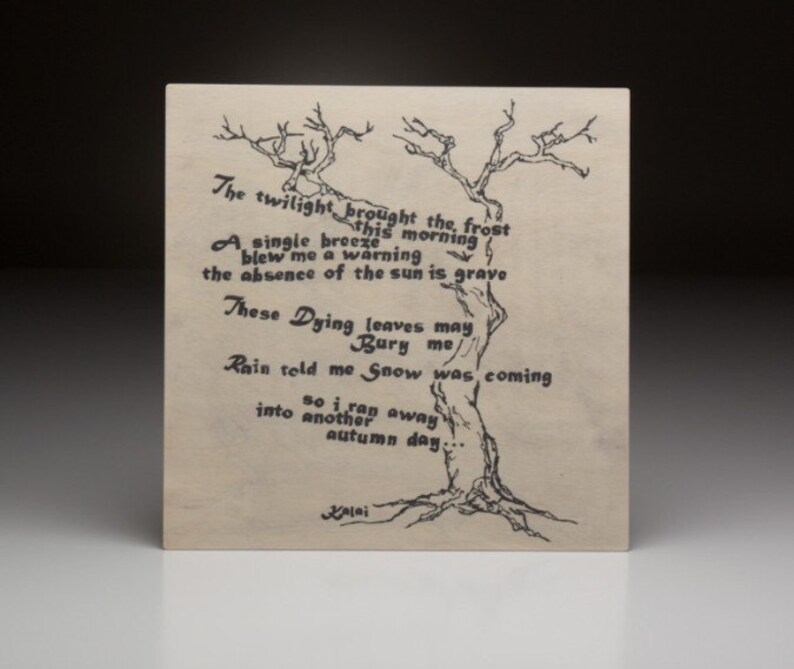 The twilight brought the frost
this morning
A single breeze
blew me a warning
the absence of the sun is grave
These Dying leaves may
Bury me
Rain told me Snow was coming
so i ran away
into another
autumn day...
Kalai